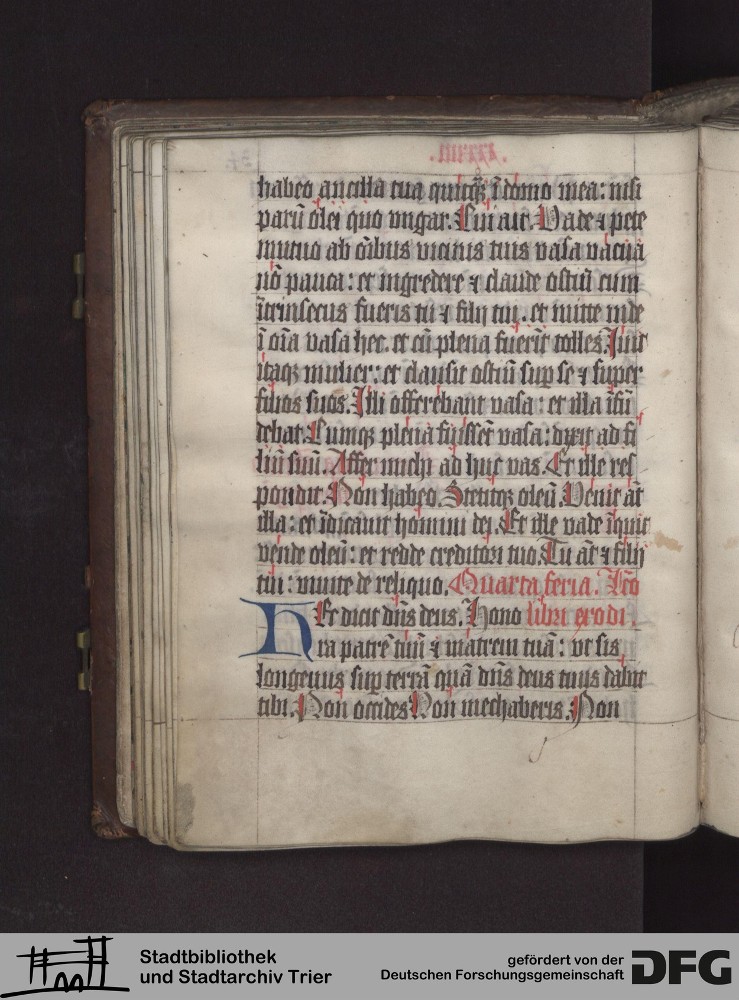 habeo ancilla tua quicq̄ȝ ī domo mea: nisi
parū olei quo vngar. Cui ait. Vade ⁊ pete
mutuo ab oībus vicinis tuis vasa vacua
nō pauca: et ingredere ⁊ claude ostiū cum
ītrinsecus fueris tu ⁊ filij tui. et mitte inde
ī oīa vasa hec. et cū plena fuerīt tolles. Iuit
itaqȝ mulier: et clausit ostiū sup se ⁊ super
filios suos. Illi offerebant vasa: et illa īfū
debat. Cumqȝ plena fuissēt vasa: dixit ad fi
liū suū. Affer michi ad huc vas. Et ille res
pondit. Non habeo. Stetitqȝ oleū. Venit āt
illa: et īdicauit homini dei. Et ille vade īquit
vende oleū: et redde creditori tuo. Tu āt ⁊ filij
tui: viuite de reliquo. Quarta feria. Lc̄o
Hec dicit dn̄s deus. Hono libri exodi.
ra patrē tuū ⁊ matrem tuā: vt sis
longeuus sup terrā quā dn̄s deus tuus dabit
tibi. Non occides Non mechaberis. Non
Stadtbibliothek
und Stadtarchiv Trier
gefördert von der
Deutschen Forschungsgemeinschaft
DFG